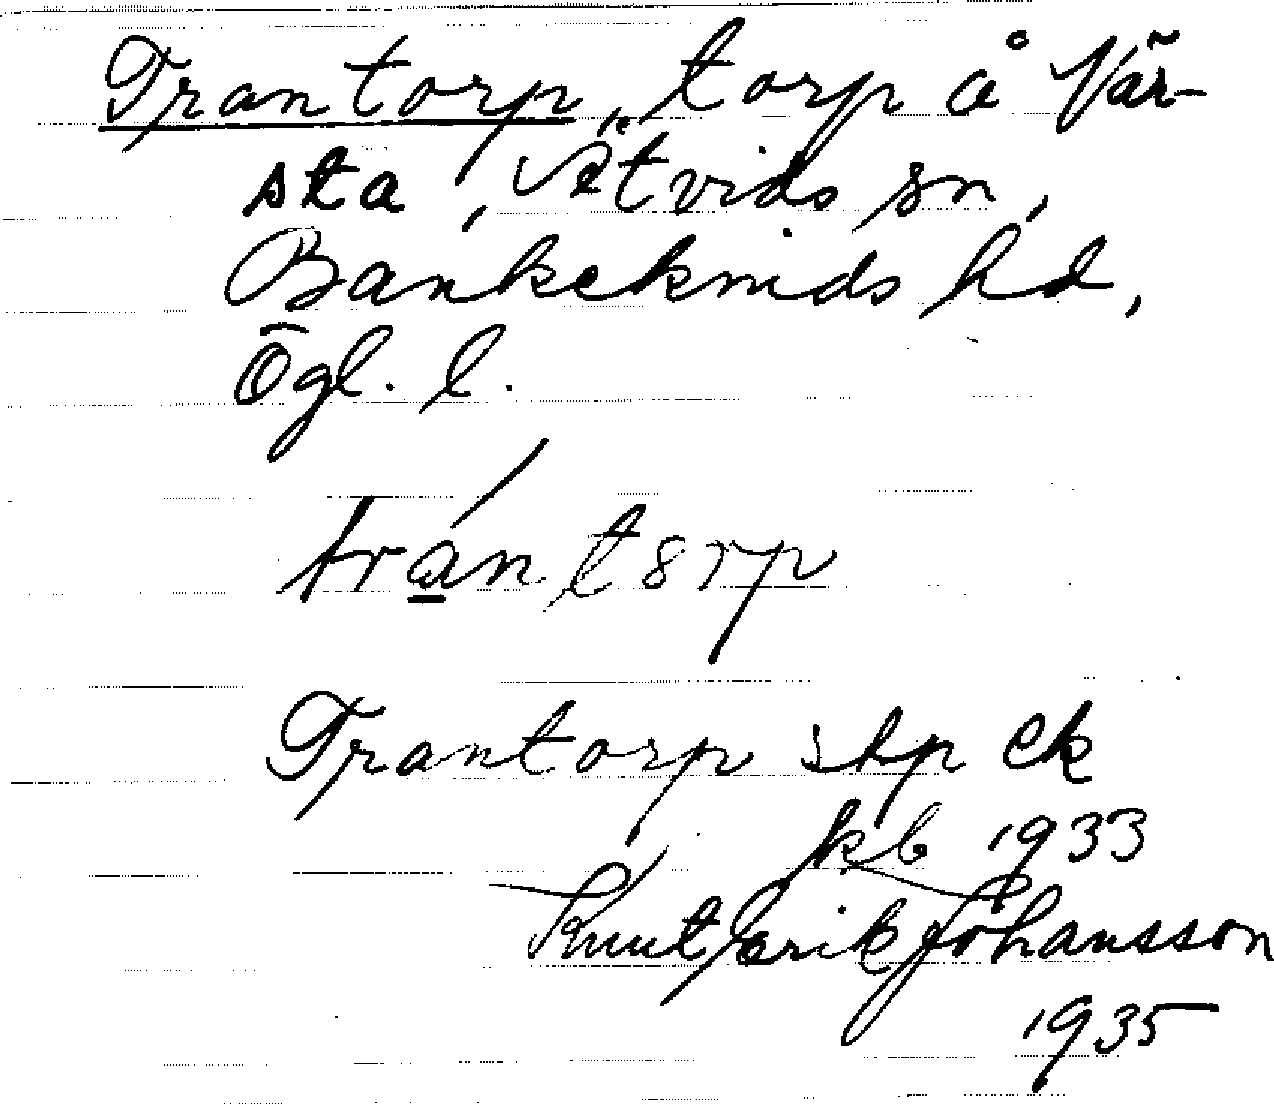 Trantorp, torp å Vär-
sta, Ätvids sn,
Bankekinds hd,
Ögl. l.
trántorp
Trantorp shp ek
kb 1933
Knut Erik Johansson
1935